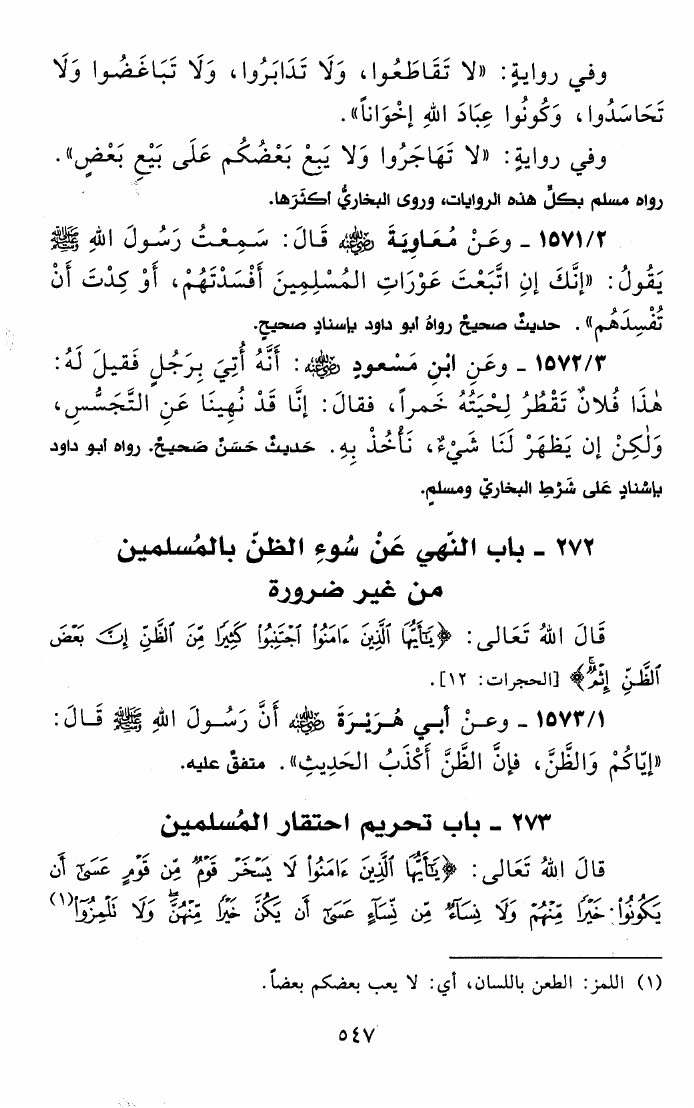 وفي روايةٍ: «لا تَقَاطَعُوا، وَلَا تَدَابَرُوا، وَلَا تَبَاغَضُوا وَلَا
تَحَاسَدُوا، وَكُونُوا عِبَادَ اللهِ إخْوَاناً».
وفي رواية: «لا تَهَاجَرُوا وَلا يَبِعْ بَعْضُكُم عَلَى بَيْعِ بَعْضٍ».
رواه مسلم بكلِّ هذه الروايات، وروى البخاريُّ أكثَرَها.
١٥٧١/٢ ـ وعَنْ مُعَاوِيَةَ رضي الله عنه قَالَ: سَمِعْتُ رَسُولَ اللهِ ﷺ
يَقُولُ: «إنَّكَ إنِ اتَّبَعْتَ عَوْرَاتِ المُسْلِمِينَ أَفْسَدْتَهُمْ، أَوْ كِدْتَ أَنْ
تُفْسِدَهُم». حديثٌ صحيحٌ رواهُ أبو داود بإسنادٍ صحيحٍ.
١٥٧٢/٣ ـ وعَنِ ابْنِ مَسْعودٍ رضي الله عنه: أَنَّهُ أُتِيَ بِرَجُلٍ فَقيلَ لَهُ:
هٰذَا فُلانٌ تَقْطُرُ لِحْيَتُهُ خَمراً، فقالَ: إنَّا قَدْ نُهِينَا عَنِ التَّجَسُّسِ،
وَلٰكِنْ إن يَظهَرْ لَنَا شَيْءٌ، نَأْخُذْ بِهِ. حَديثٌ حَسَنٌ صَحيحٌ. رواه أبو داود
بإسْنادٍ عَلى شَرْطِ البخاريّ ومسلمٍ.
٢٧٢ ـ باب النّهي عَنْ سُوءِ الظنّ بالمُسلمين
من غير ضرورة
قَالَ اللهُ تَعَالى: ﴿يَـٰٓأَيُّهَا ٱلَّذِينَ ءَامَنُوا۟ ٱجْتَنِبُوا۟ كَثِيرًا مِّنَ ٱلظَّنِّ إِنَّ بَعْضَ
ٱلظَّنِّ إِثْمٌ﴾ [الحجرات: ١٢].
١٥٧٣/١ ـ وعنْ أبي هُرَيْرَةَ رضي الله عنه أَنَّ رَسُولَ اللهِ ﷺ قَالَ:
«إيّاكُمْ وَالظَّنَّ، فإنَّ الظَّنَّ أَكْذَبُ الحَدِيثِ». متفقٌ عليه.
٢٧٣ ـ باب تحريم احتقار المُسلمين
قالَ اللهُ تَعَالى: ﴿يَـٰٓأَيُّهَا ٱلَّذِينَ ءَامَنُوا۟ لَا يَسْخَرْ قَوْمٌ مِّن قَوْمٍ عَسَىٰٓ أَن
يَكُونُوا۟ خَيْرًا مِّنْهُمْ وَلَا نِسَآءٌ مِّن نِّسَآءٍ عَسَىٰٓ أَن يَكُنَّ خَيْرًا مِّنْهُنَّ ۖ وَلَا تَلْمِزُوٓا۟(١)
(١) اللمز: الطعن باللسان، أي: لا يعب بعضكم بعضاً.
٥٤٧